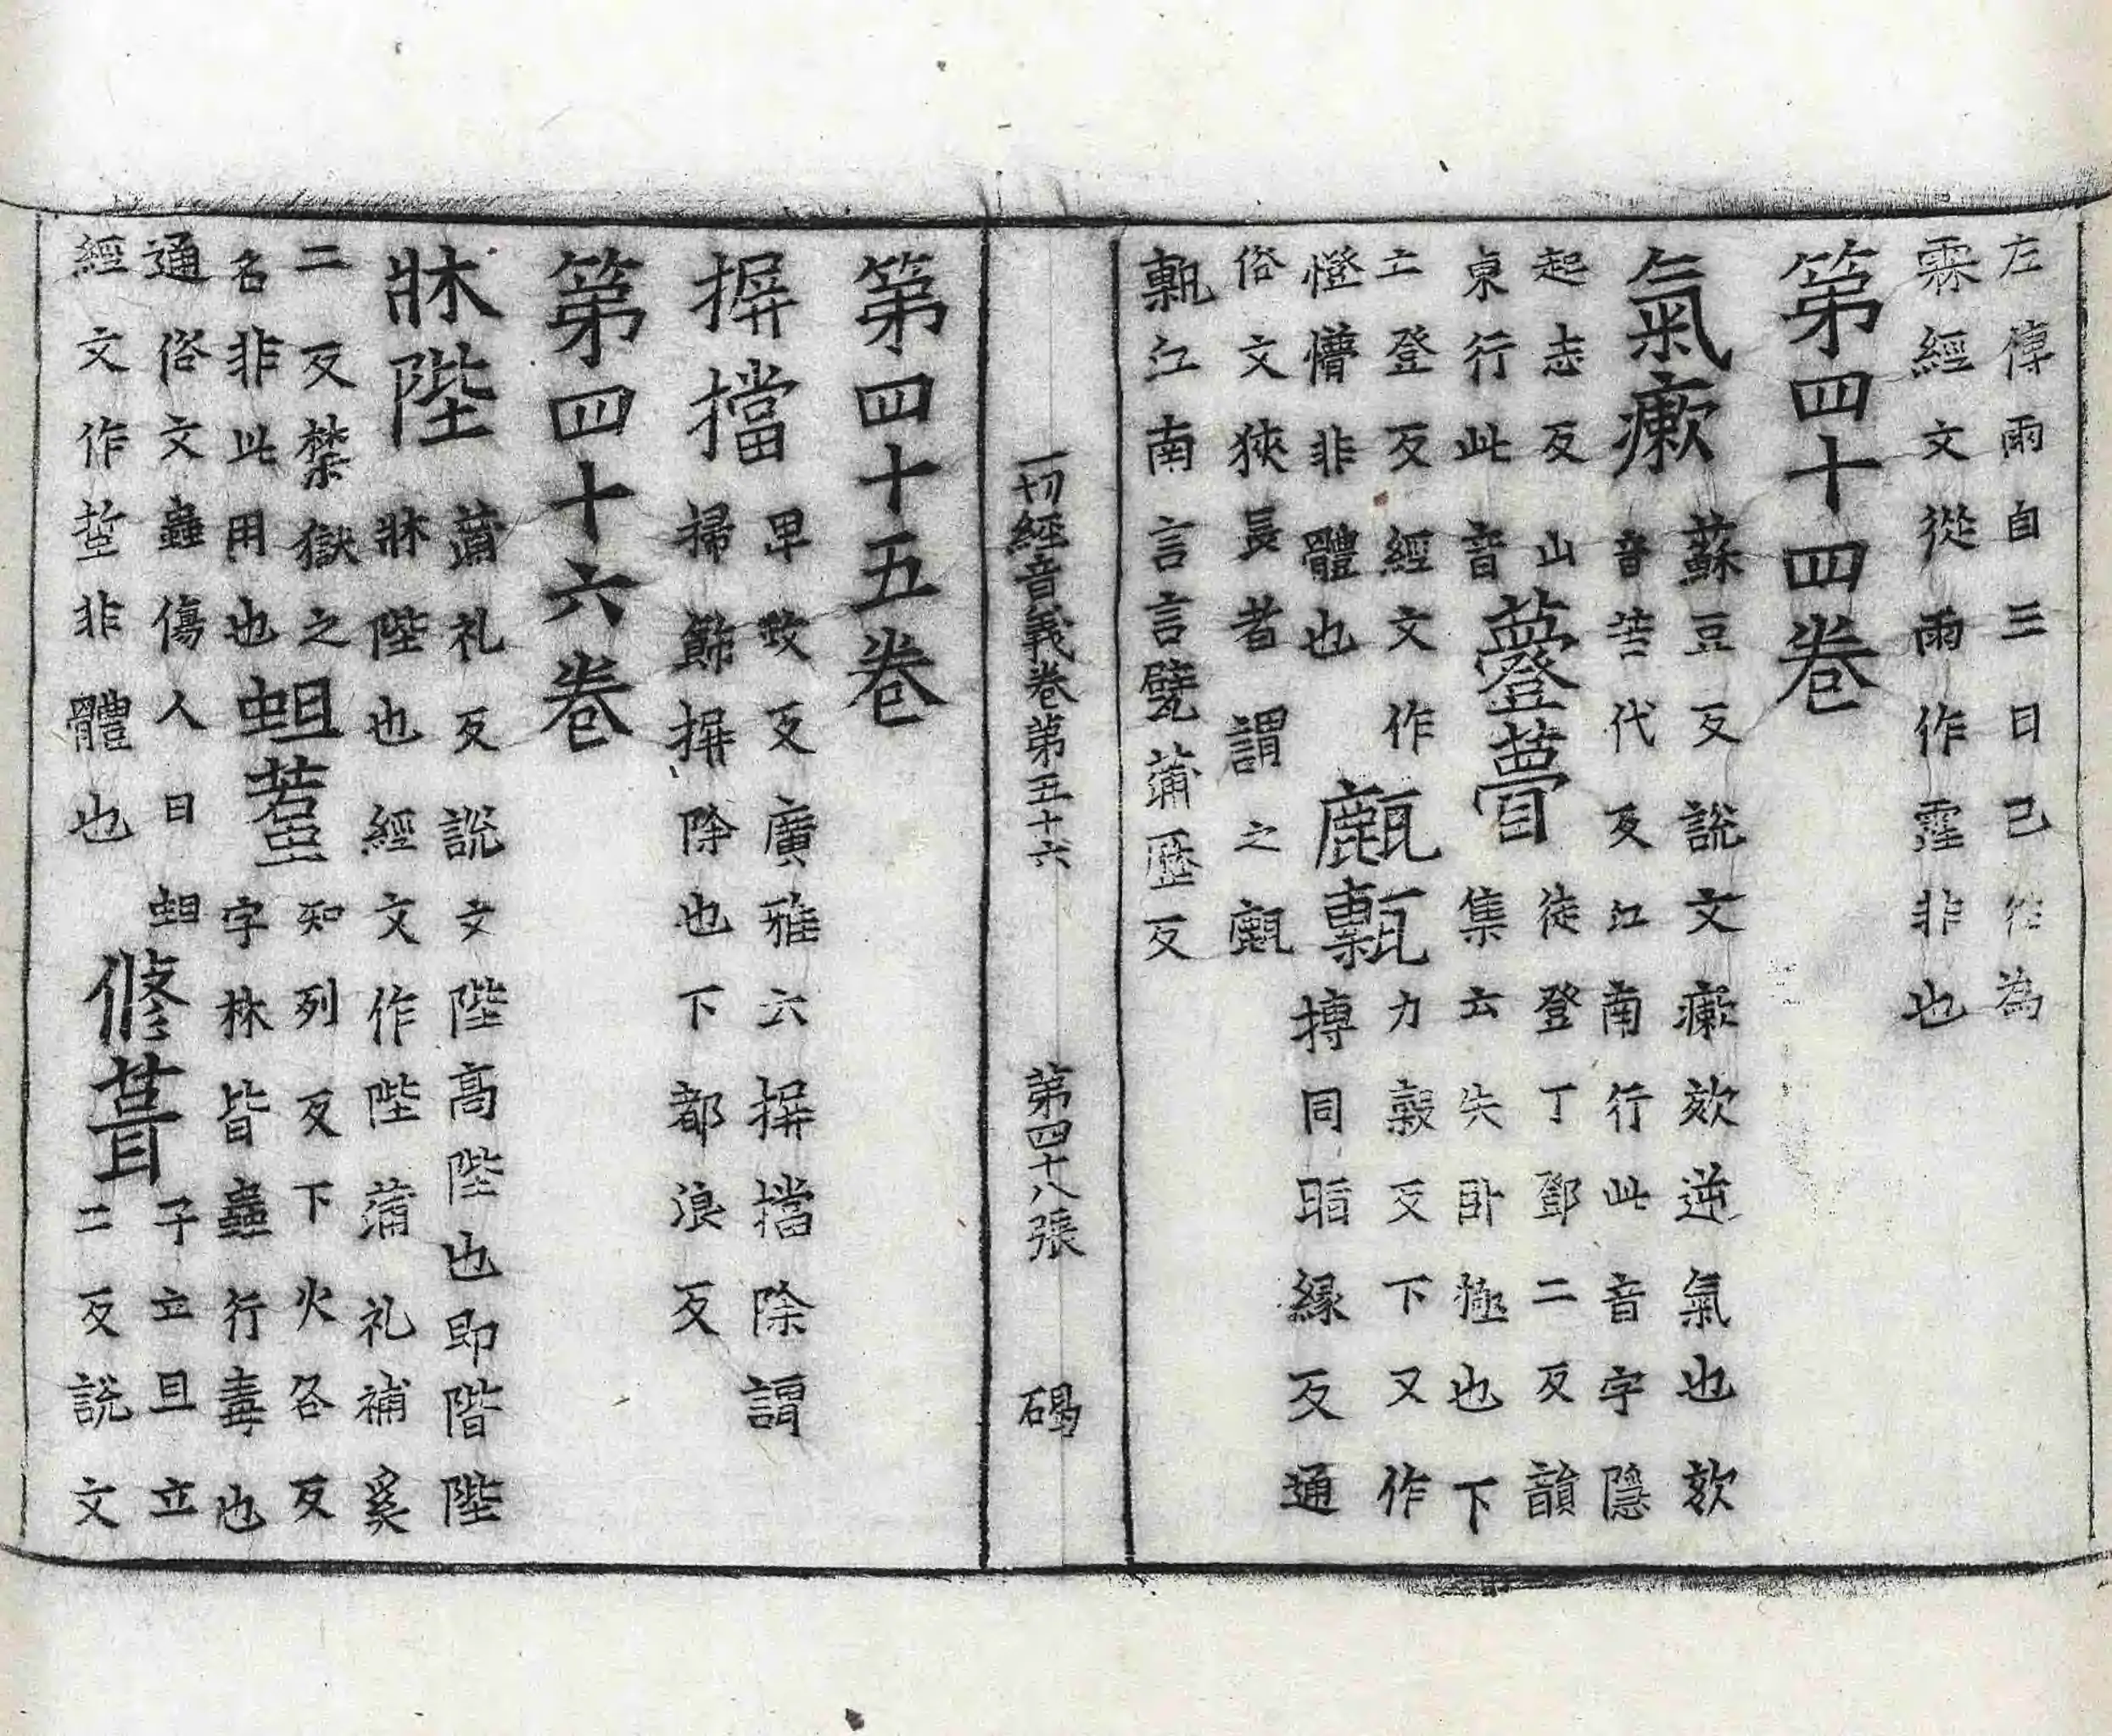 左傳雨自三日已往為
霖經文從雨作霪非也
第四十四卷
氣瘶
蘇豆反說文瘶欬逆氣也欬
音苦代反江南行此音字隱
起志反山
東行此音
薹瞢
徒登丁鄧二反韻
集云失卧極也下
亡登反經文作
憕懵非體也
甎
力穀反下又作
摶同脂緣反通
俗文狹長者謂之
甎江南言言甓蒲歷反
一切經音義卷第五十六 第四十八張 碣
第四十五卷
摒擋
卑政反廣雅云摒擋除謂
掃飾摒除也下都浪反
第四十六卷
牀陛
蒲礼反說文陛高陛也即階陛
牀陛也經文作陛蒲礼補奚
二反禁獄之
名非此用也
蛆
知列反下火各反
字林皆蟲行毒也
通俗文蟲傷人曰蛆
經文作蜇非體也
修葺
子立且立
二反說文